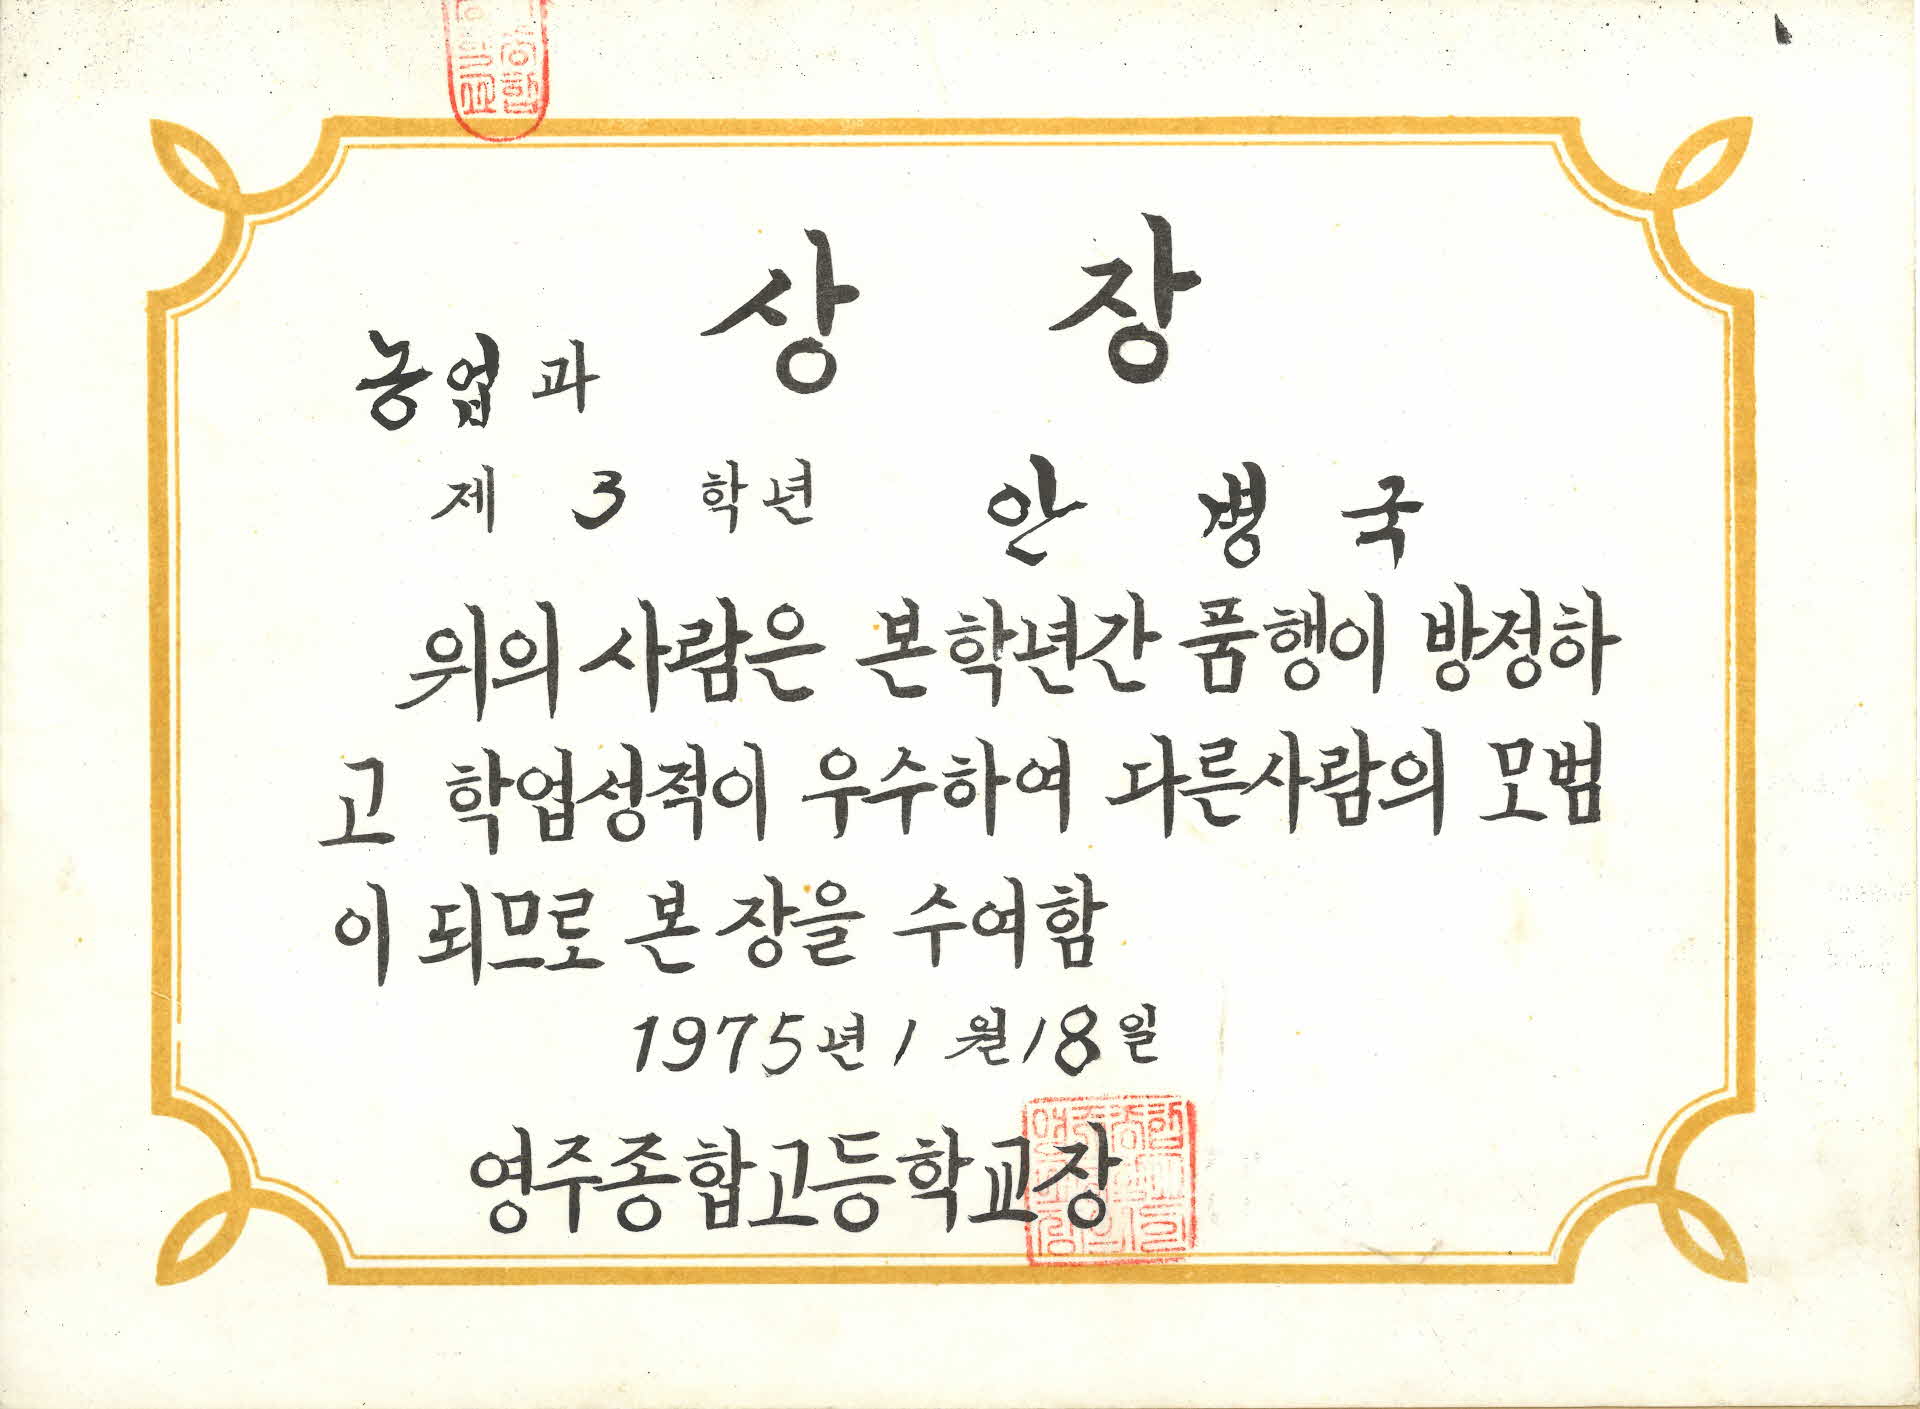 상장
농업과
제 3 학년 안병국
위의 사람은 본학년간 품행이 방정하
고 학업성적이 우수하여 다른사람의 모범
이 되므로 본 장을 수여함
1975년 1월 18일
영주종합고등학교장